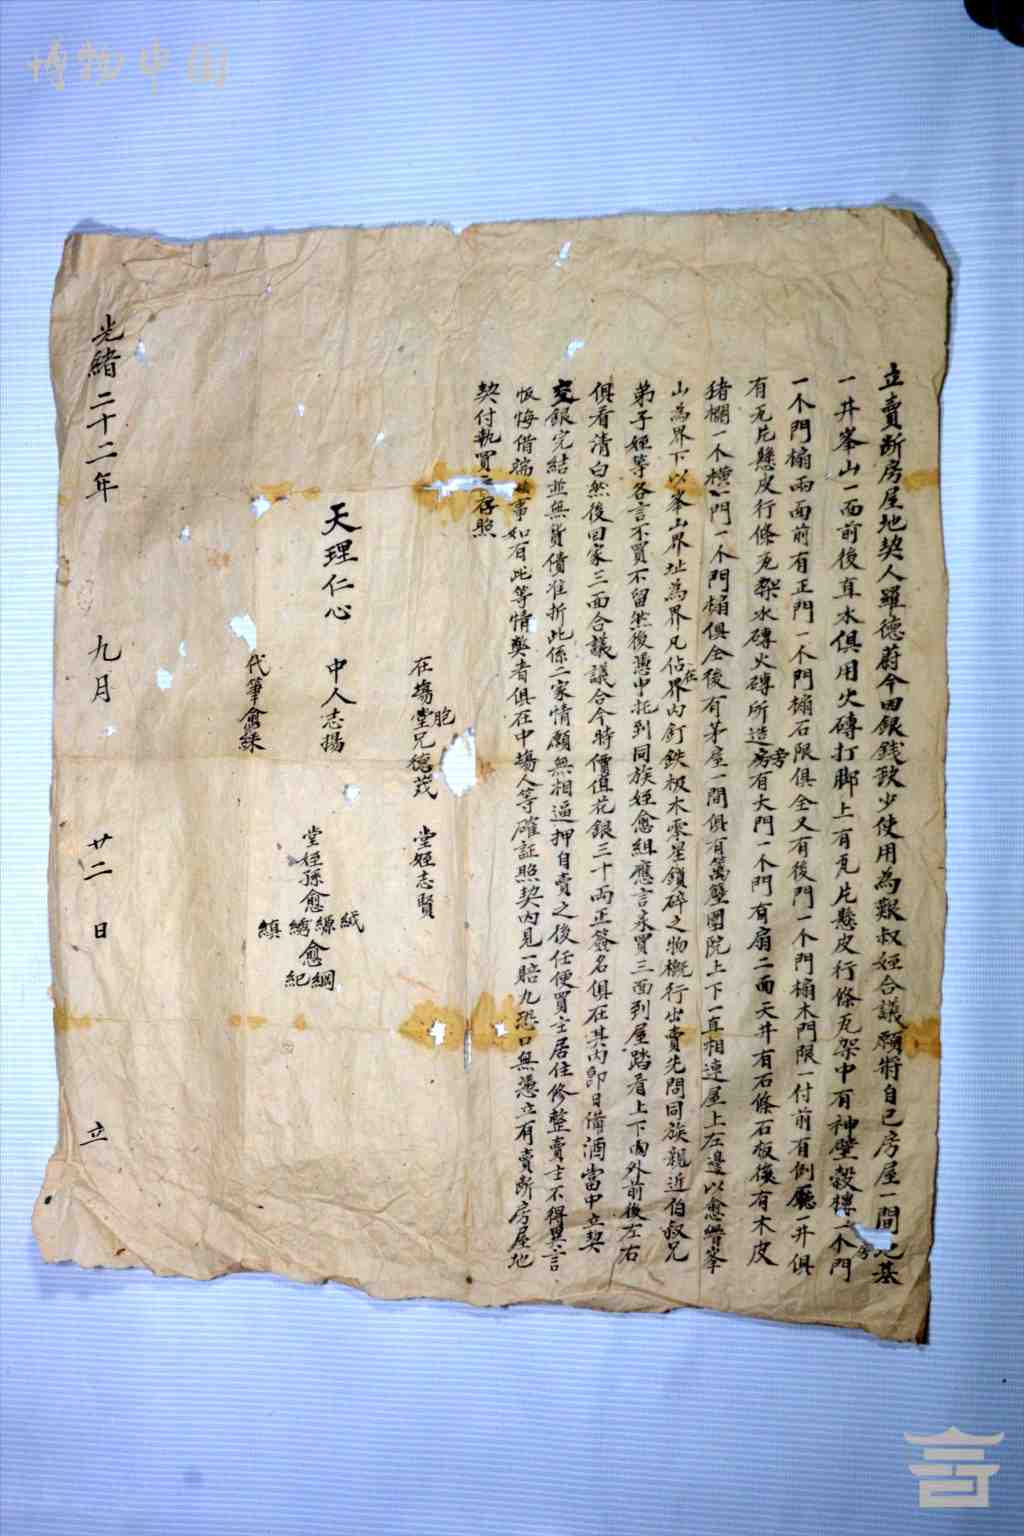 博物中国
立賣斷房屋地契人羅德蔚今因銀錢致少使用為艱叔姪合議願將自己房屋一間地基
一井峯山一面前後直水俱用火磚打脚上有瓦片懸皮行條瓦架中有神壁穀樓一个門
一个門榍兩面前有正門一个門榍石限俱全又有後門一个門榍木門限一付前有倒廳一井俱
有瓦片懸皮行條瓦架水磚火磚所造旁房有大門一个門有扇二面天井有石條石板俵有木皮
猪欄一个横門一个門榍俱全後有茅屋一間俱有萬壁團院上下一直相連屋上左邊以愈峯
山為界下以峯山界址為界凡佔界內釘鉄极木零星鎖碎之物概行出賣先問同族親近伯叔兄
弟子姪等各言不買不留然後憑中托到同族姪愈組應言承買三面到屋踏看上下內外前後左右
俱看清白然後回家三面合議議合今時價值花銀三十両正簽名俱在其內即日備酒當中立契
交銀完結並無貨債准折此係二家情願無相逼押自賣之後任便買主居住修整賣主不得異言
恢悔借端事如有此等情獘者俱在中塲人等確証照契內見一賠九恐口無憑立有賣斷房屋地
契付執買存照
在塲胞堂兄德茂 堂姪志賢
天理仁心 中人志揚
堂姪孫愈絨縣繡縝 愈綱紀
代筆愈綵
光緒二十二年 九月 廿二日 立